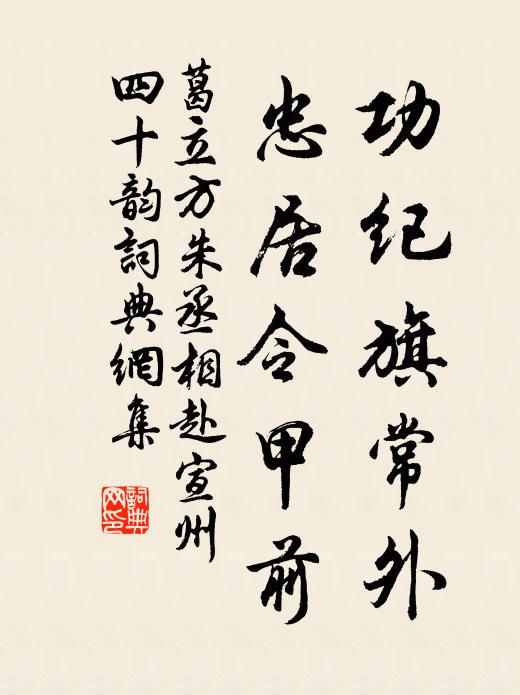 功纪旗常外
忠居令甲前
葛立方朱丞相赴宣州
四十韵詞典網集
詞典网印